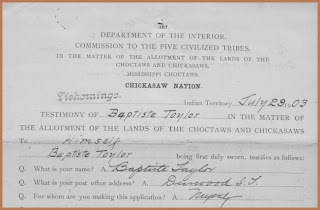 DEPARTMENT OF THE INTERIOR.
COMMISSION TO THE FIVE CIVILIZED TRIBES.
IN THE MATTER OF THE ALLOTMENT OF THE LANDS OF THE
CHOCTAWS AND CHICKASAWS.
MISSISSIPPI CHOCTAWS,
CHICKASAW NATION.
Tishomingo, Indian Territory, July 29 03
TESTIMONY OF Baptiste Taylor IN THE MATTER OF
THE ALLOTMENT OF THE LANDS OF THE CHOCTAWS AND CHICKASAWS
To Himself
Baptiste Taylor being first duly sworn, testifies as follows:
Q. What is your name? A. Baptiste Taylor
Q. What is your post office address? A. Durwood I.T.
Q. For whom are you making this application? A. Myself